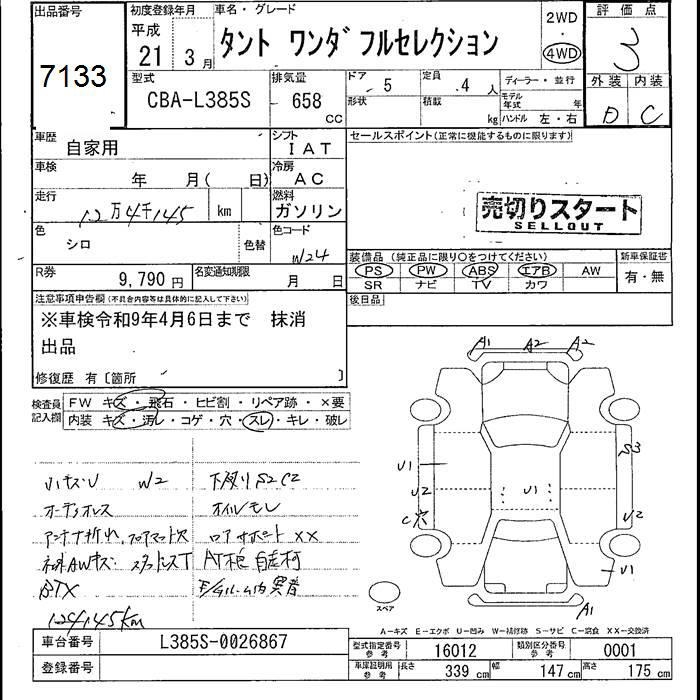 出品番号
7133
初度登録年月
平成
21年
3月
車名・グレード
タント ワンダフルセレクション
2WD
・
4WD
評価点
3
型式
CBA-L385S
排気量
658
CC
ドア
5
定員
4人
形状
積載
kg
ディーラー・並行
モデル年式
年
ハンドル 左・右
外装 内装
D C
車歴
自家用
シフト
IAT
セールスポイント(正常に機能するものに限ります)
車検
年 月( 日)
冷房
AC
走行
12万4千145
km
燃料
ガソリン
売切りスタート
SELLOUT
色
シロ
色替
色コード
W24
装備品(純正品に限り○をつけてください)
PS PW ABS エアB AW
SR ナビ TV カワ
新車保証書
有・無
R券
9,790円
名変通知期限
月 日
後日品
注意事項申告欄(不具合内容等は具体的に記入して下さい)
※車検令和9年4月6日まで 抹消
出品
修復歴 有〔箇所 〕
検査員記入欄
FW キズ・飛石・ヒビ割・リペア跡・×要
内装 キズ・汚レ・コゲ・穴・スレ・キレ・破レ
小キズU W2 下廻りS2C2
オーディオレス オイルモレ
アンテナ折れ、フロアマット欠 ロアサポート XX
AWキズ スタッドレスT
BTX
124145km
A1 A2 A2
S3
U1
U2
U1
C穴
U2
U1
A1
スペア
A-キズ E-エクボ U-凹み W-補修跡 S-サビ C-腐食 XX-交換済
車台番号
L385S-0026867
登録番号
型式指定番号 参考
16012
類別区分番号 参考
0001
車庫証明用 参考
長さ 339cm
幅 147cm
高さ 175cm